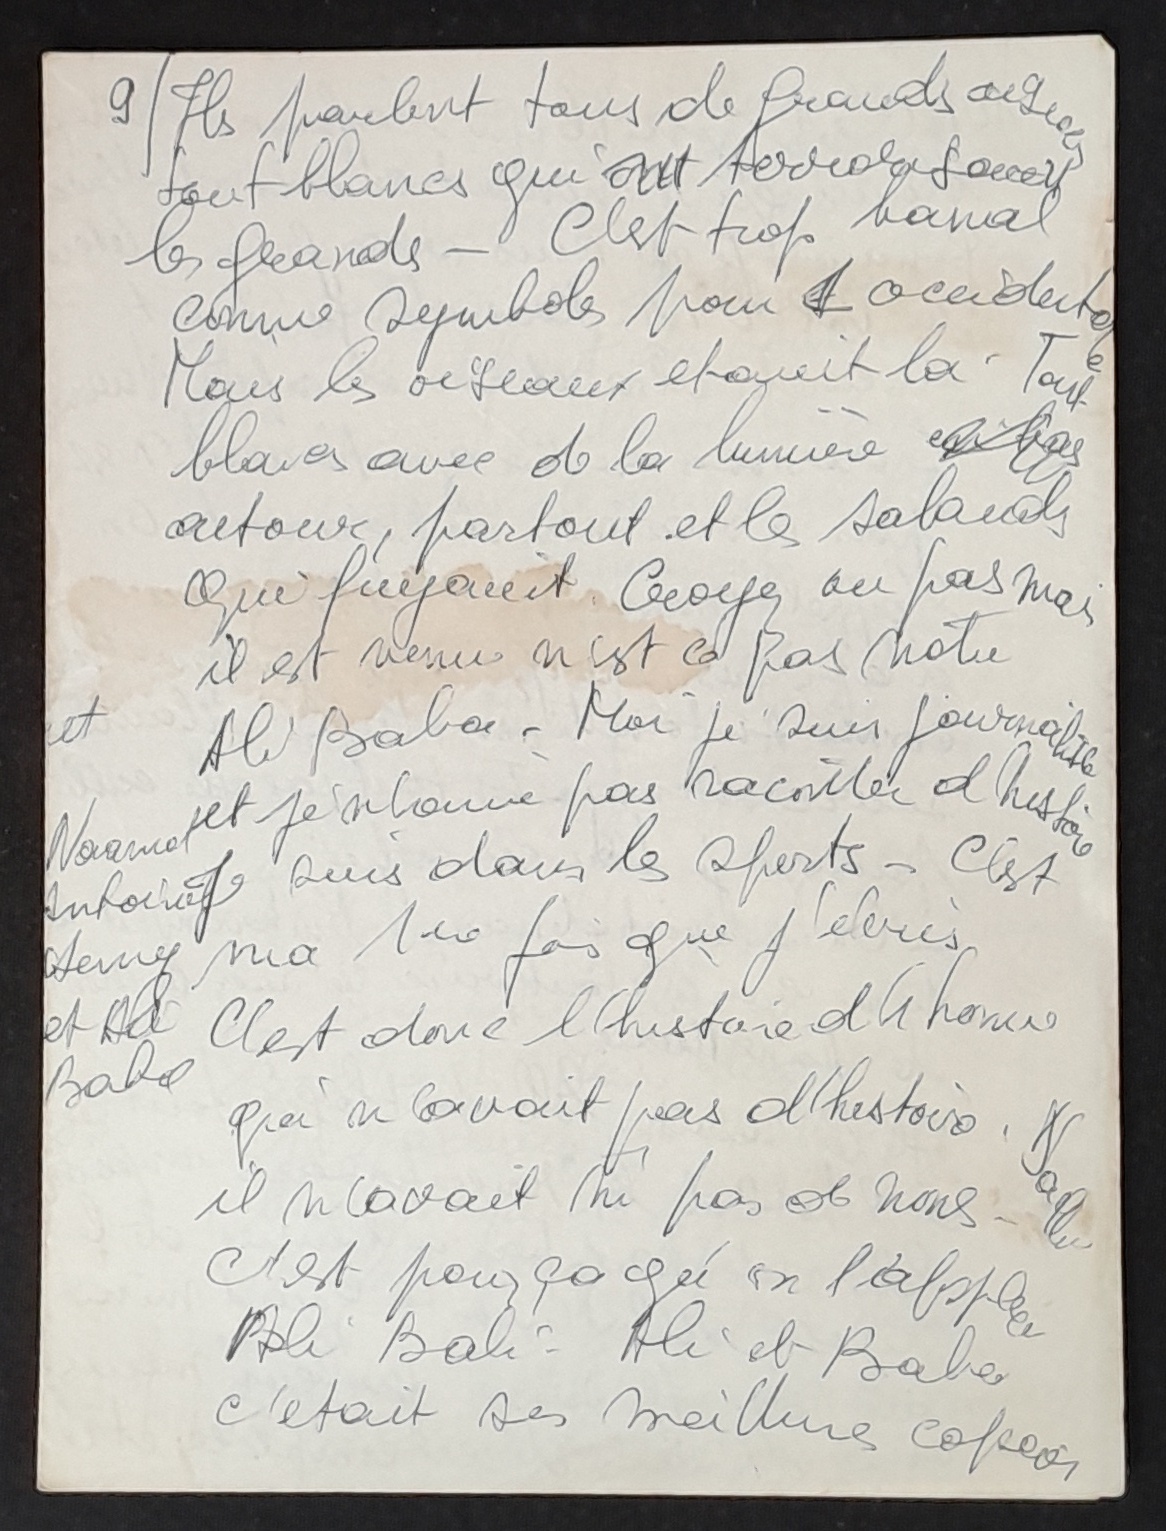 9/ Ils parlent tous de grands oiseaux
tout blancs qui ont
les grands - C'est trop banal
comme symboles pour occidentaux
Mais les oiseaux etaient la. Tout
blancs avec de la lumière
autour, partout et les salauds
qui fuyaient. Croyez ou pas mais
il est venu n'est ce pas notre
Ali Baba - Moi je suis journaliste
et pas raconter d'histoire
je suis dans les sports - C'est
ma 1re fois que j'écris.
C'est donc l'histoire d'1 homme
qui n'avait pas d'histoire.
il n'avait ni pas de noms -
c'est pour ça qu'on l'appelle
Ali Bali - Ali et Baba
c'etait ses meilleurs copains
et
Antoine
et Ali
Baba